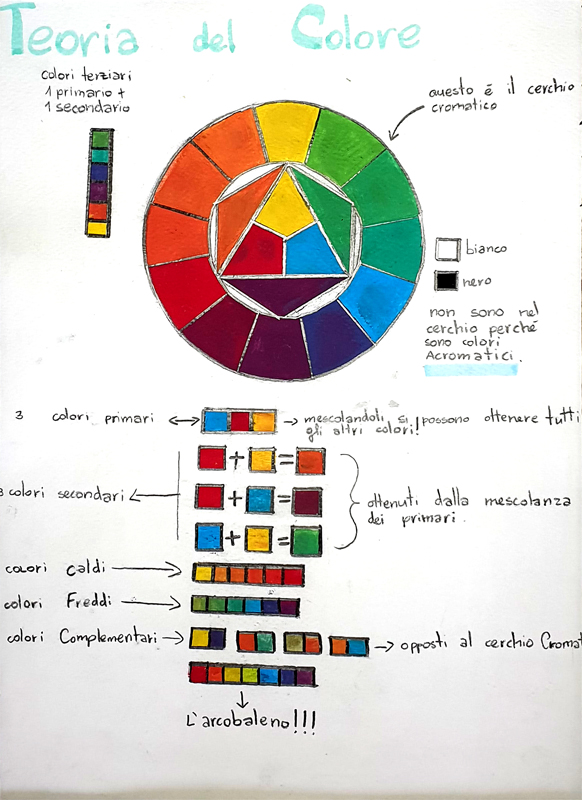 Teoria del Colore
colori terziari
1 primario +
1 secondario
questo é il cerchio
cromatico
bianco
nero
non sono nel
cerchio perché
sono colori
Acromatici.
3 colori primari
mescolandoli si possono ottenere tutti
gli altri colori!
3 colori secondari
+ =
+ =
+ =
ottenuti dalla mescolanza
dei primari.
colori Caldi
colori Freddi
colori Complementari
opposti al cerchio Cromat
L'arcobaleno!!!